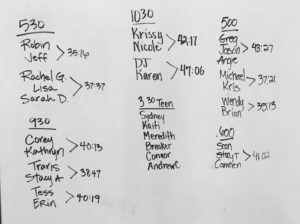 530
Robin
Jeff
35:16
Rachel G.
Lisa
Sarah D.
37:37
930
Corey
Kathryn
40:13
Travis
Stacy A
38:47
Tess
Erin
40:19
1030
Krissy
Nicole
42:17
DJ
Karen
47:06
3:30 Teen
Sydney
Kaiti
Meredith
Breaker
Connor
Andrew C
500
Greg
Jason
Angie
43:27
Michael
Kris
37:21
Wendy
Brian
600
Sean
Stacy T
Cameron
41:02